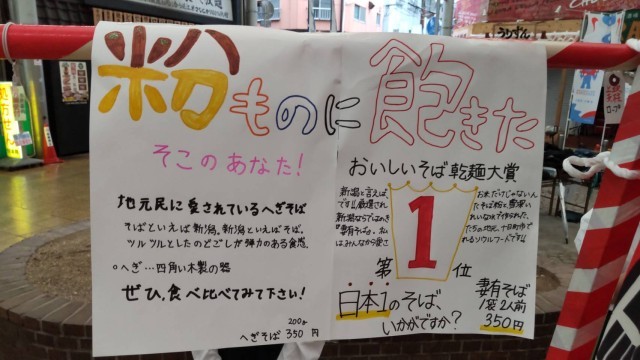 粉ものに飽きた
そこのあなた!
地元民に愛されているへぎそば
そばといえば新潟。新潟といえばそば。
ツルツルとしたのどごしが弾力のある食感。
○へぎ…四角い木製の器
ぜひ、食べ比べてみて下さい!
200g
へぎそば 350円
おいしいそば乾麺大賞
新潟と言えば、
です!!厳選され
新潟ならではのき
「妻有そば」は、私
はみんなから愛さ
第1位
お米だけじゃないん
たそば粉と豊富い
れいな水で作られた、
たちの地元、十日町市で
れるソウルフードです!!
日本1のそば
いかがですか?
妻有そば
1袋2人前
350円